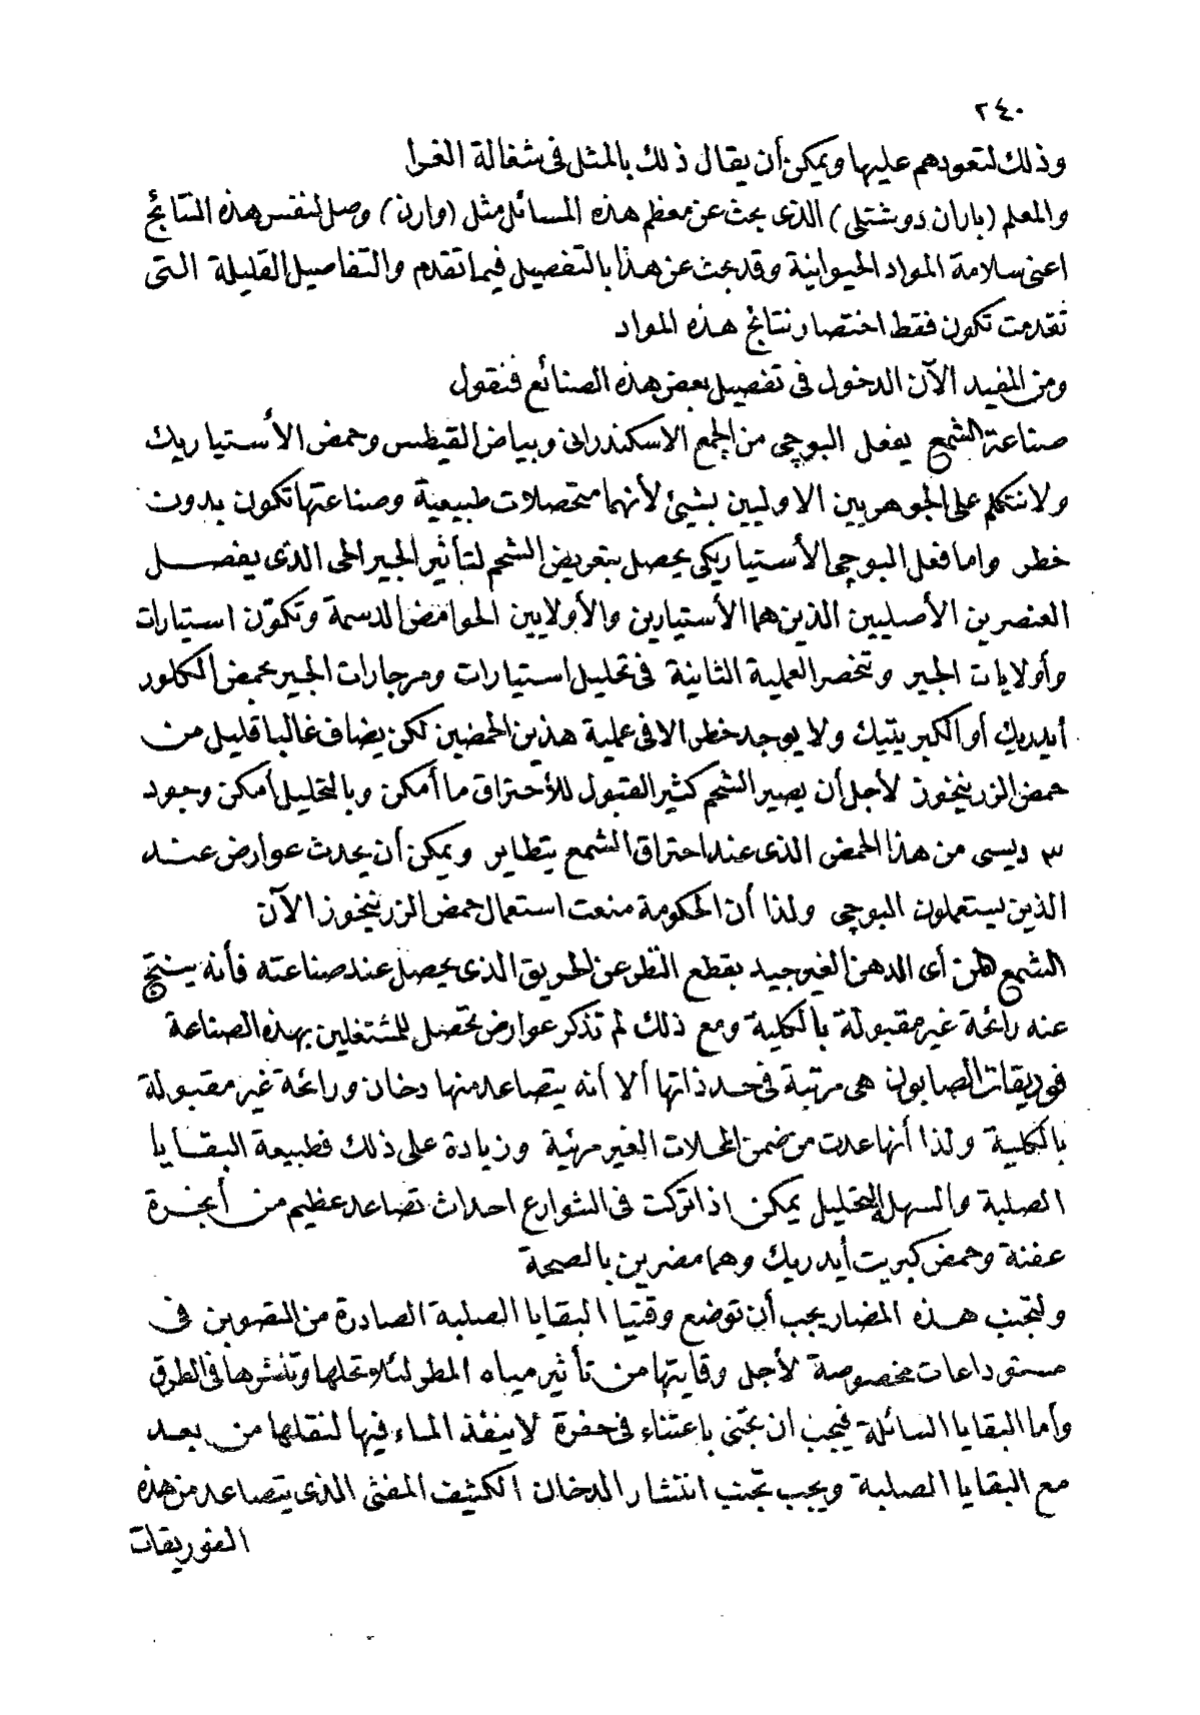 ٢٤٠
وذلك لتعودهم عليها ويمكن أن يقال ذلك بالمثل فى شغالة الغرا
والمعلم (باران دوشتلى) الذى بحث عن معظم هذه المسائل مثل (وارن) وصل لنفس هذه النتائج
اعنى سلامة المواد الحيوانية وقد بحث عن هذا بالتفصيل فيما تقدم والتفاصيل القليلة التى
تقدمت تكون فقط اختصار نتائج هذه المواد
ومن المفيد الآن الدخول فى تفصيل بعض هذه الصنائع فنقول
صناعة الشمع يفعل البوجى من الجمع الاسكندرانى وبياض القيطس وحمض الأستياريك
ولا نتكلم على الجوهريين الاوليين بشيئ لأنهما متحصلات طبيعية وصناعتها تكون بدون
خطر واما فعل البوجى الأستياريكى يحصل بتعريض الشحم لتأثير الجير الحى الذى يفصل
العنصرين الأصليين الذين هما الأستيارين والأولايين الحوامض الدسمة وتكوّن استيارات
وأولايات الجير وتنحصر العملية الثانية فى تحليل استيارات ومرجارات الجير بحمض الكلور
أيدريك أو الكبريتيك ولا يوجد خطر الا فى عملية هذين الحمضين لكن يضاف غالبا قليل من
حمض الزرنيخوز لأجل أن يصير الشحم كثير القبول للأحتراق ما أمكن وبالتحليل أمكن وجود
٣ ديسى من هذا الحمض الذى عند احتراق الشمع يتطاير ويمكن أن يحدث عوارض عند
الذين يستعملون البوجى ولذا أن الحكومة منعت استعمال حمض الزرنيخوز الآن
الشمع أى الدهن الغير جيد بقطع النظر عن الحريق الذى يحصل عند صناعته فأنه ينتج
عنه رائحة غير مقبولة بالكلية ومع ذلك لم تذكر عوارض تحصل للمشتغلين بهذه الصناعة
فوريقات الصابون هى مرتبة فى حد ذاتها ألا أنه يتصاعد منها دخان ورائحة غير مقبولة
بالكلية ولذا أنها عدت من ضمن المحلات الغير مرئية وزيادة على ذلك فطبيعة البقايا
الصلبة والسهل التحليل يمكن اذا تركت فى الشوارع احداث تصاعد عظيم من أبخرة
عفنة وحمض كبريت أيدريك وهما مضرين بالصحة
ولتجنب هذه المضار يجب أن توضع وقتيا البقايا الصلبة الصادرة من التصوبن فى
مستوداعات مخصوصة لأجل وقايتها من تأثير مياه المطر لئلا وتحلها وتنشرها فى الطرق
وأما البقايا السائلة فيجب ان تجتنى باعتناء فى حفرة لا ينفذ الماء فيها لنقلها من بعد
مع البقايا الصلبة ويجب تجنب انتشار الدخان الكثيف المغثى الذى يتصاعد من هذه
الفوريقات